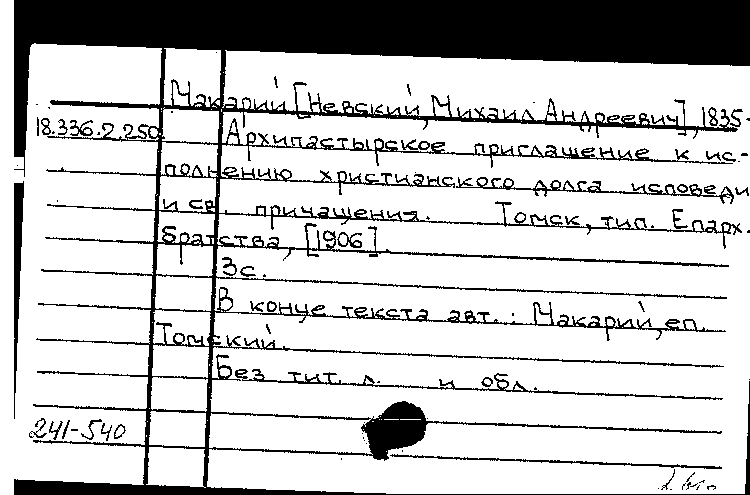 Макарий [Невский, Михаил Андреевич], 1835-
18.336.2.250 Архипастырское приглашение к ис-
полнению христианского долга исповеди
и св. причащения. Томск, тип. Епарх.
братства, [1906].
3с.
В конце текста авт.: Макарий, еп.
Томский.
Без тит. л. и обл.
241-540